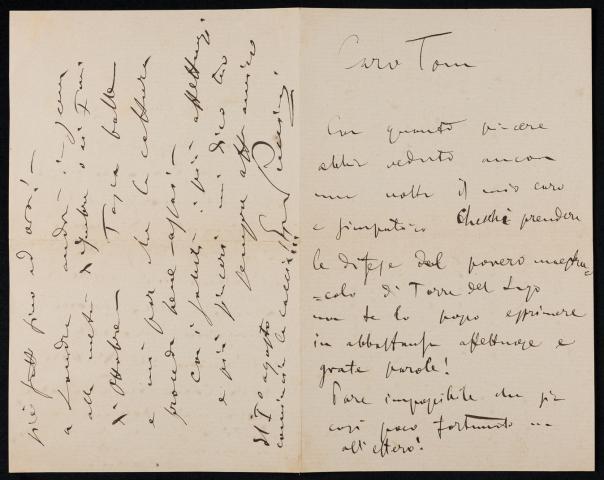 Caro Tom
Con quanto piacere
abbia veduto ancora
una volta il mio caro
e simpatico Checchi prendere
le difese del povero maestra
=colo di Torre del Lago
non te lo posso esprimere
in abbastanza affettuose e
grate parole!
Pare impossibile che sia
così poco fortunato ...
all'estero!
più fatto fino ad ora! —
a Londra andrà in scena
alla metà di 7bre o ai primi
d'Ottobre — Tosca balla
e mi par che la cottura
proceda bene assai —
Con i saluti i più affettuosi
e più sinceri mi dico tuo
sempre aff amico
Puccini
Il 1º agosto
comincia la caccia!!!